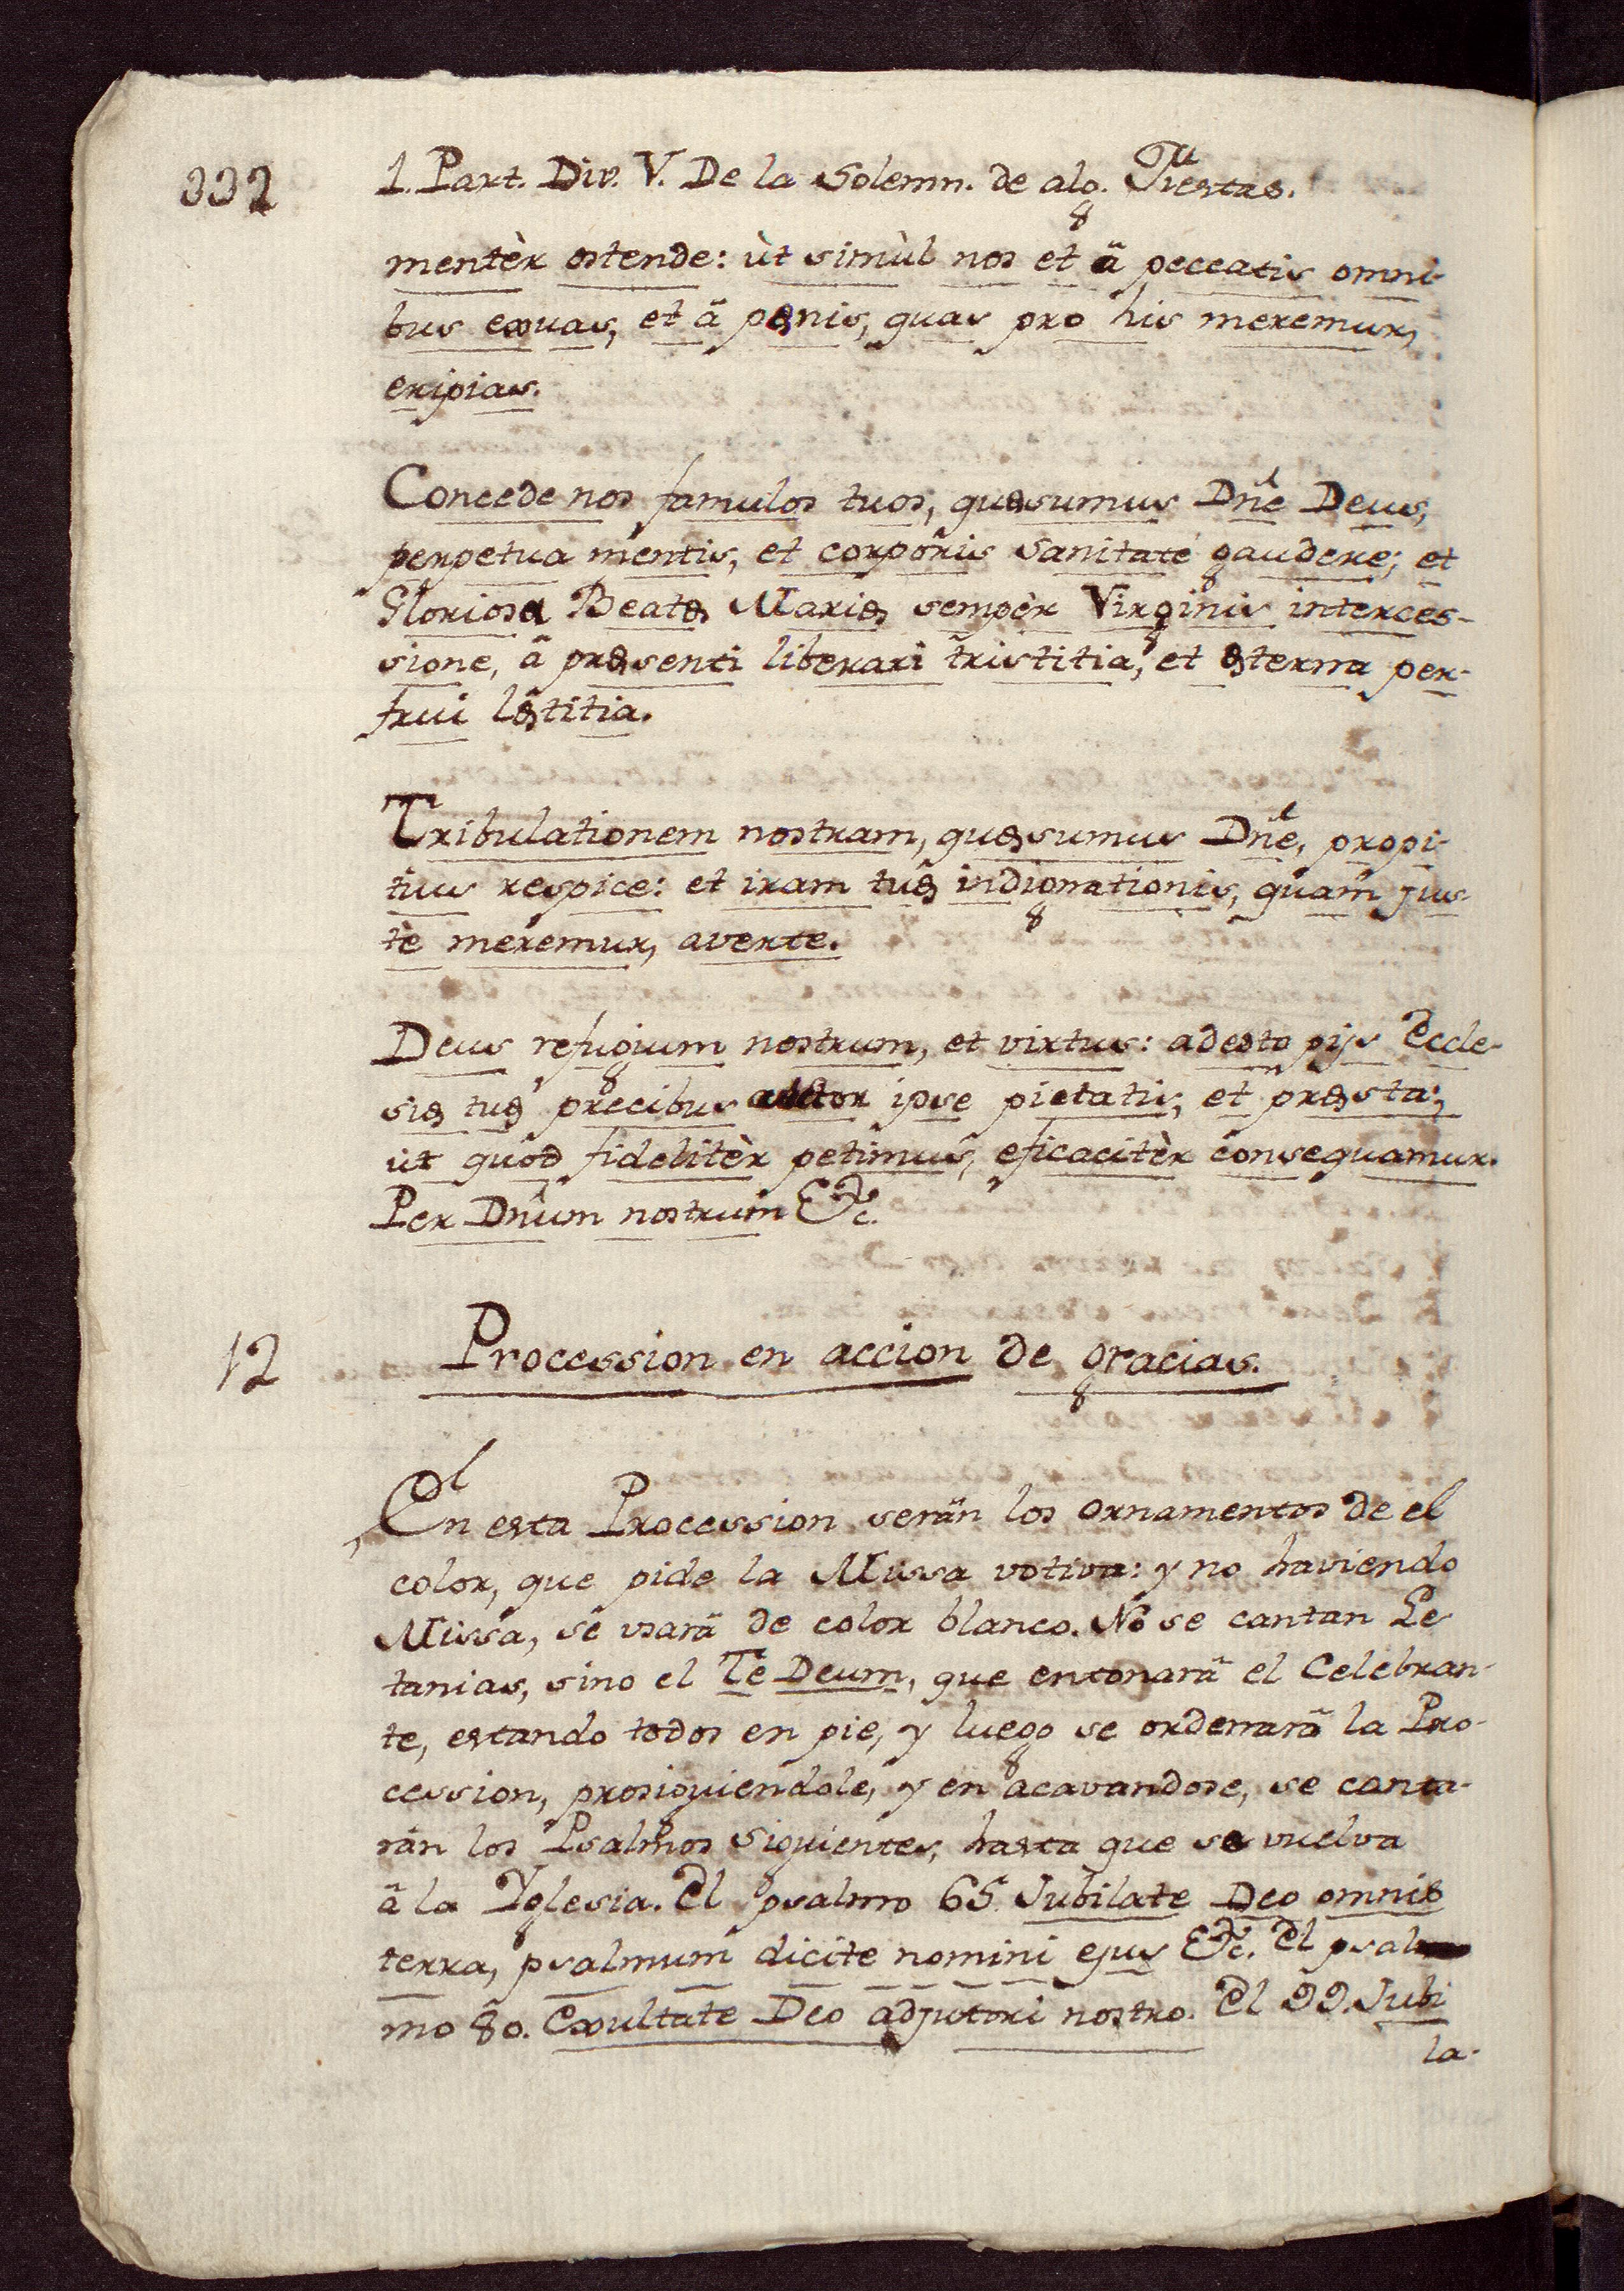 332 1. Part. Div. V. De la Solemn. de alg. Fiestas.
mentèr ostende: ùt simùl nos et â peccatis omni-
bus exuas, et â pęnis, quas pro his meremur,
eripias.
Concede nos famulos tuos, quęsumus Dñe Deus,
perpetua mentis, et corporis sanitate gaudere; et
Gloriosa Beatę Marię sempèr Virginis interces-
sione, â pręsenti liberari tristitia, et ęterna per-
frui lętitia.
Tribulationem nostram, quęsumus Dñe, propi-
tius respice: et iram tuę indignationis, quam jus-
tè meremur, averte.
Deus refugium nostrum, et virtus: adesto pijs Eccle-
się tuę precibus auctor ipse pietatis, et pręsta;
ùt quod fidelitèr petimus, eficacitèr consequamur.
Per Dñum nostrum &c.
12 Procession en accion de gracias.
En esta Procession serân los ornamentos de el
color, que pide la Missa votiva: y no haviendo
Missa, se usarâ de color blanco. No se cantan Le
tanias, sino el Te Deum, que entonarâ el Celebran-
te, estando todos en pie, y luego se ordenarâ la Pro-
cession, prosiguiendole, y en acavandose, se canta-
rân los Psalmos siguientes, hasta que se vuelva
â la Yglesia. El psalmo 65. Jubilate Deo omnis
terra, psalmum dicite nomini ejus &c. El psal
mo 80. Exultate Deo adjutori nostro. El 99. Jubi
la-